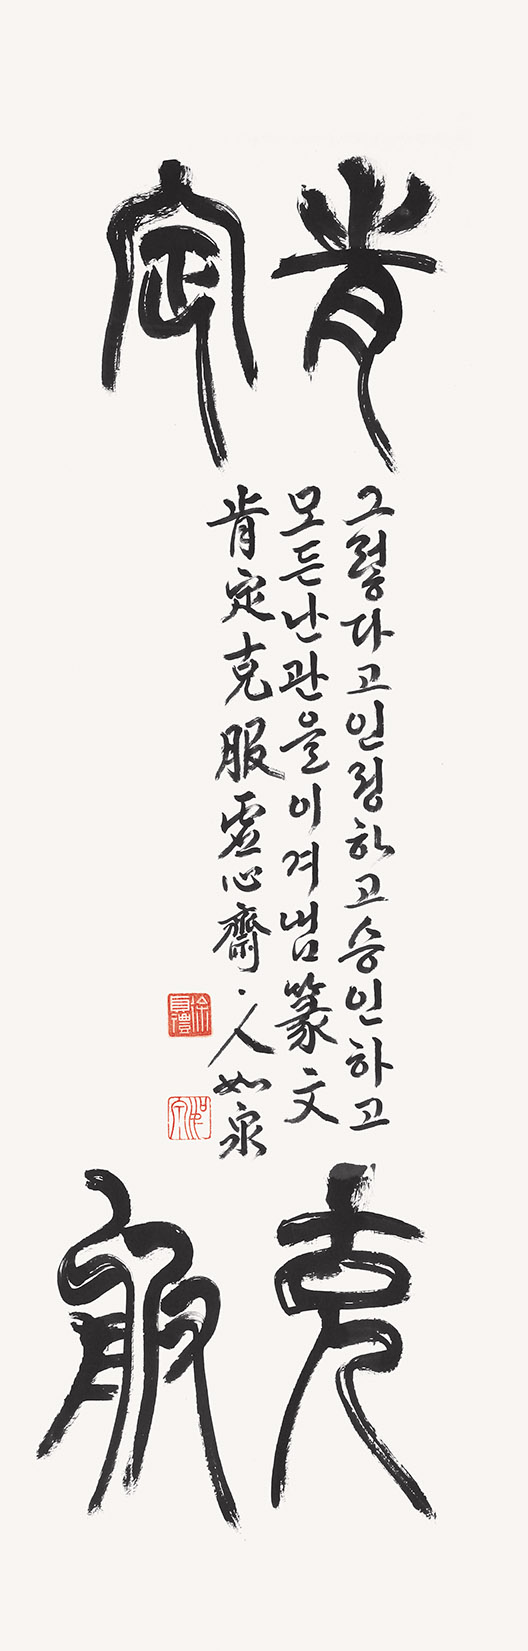 肯定
그렇다고인정하고승인하고
모든난관을이겨냄篆文
肯定克服虛心齋人如泉
克服